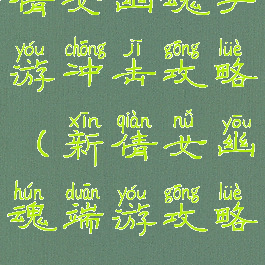 倩女幽魂手
yóu chōng jī gōng lüè
游冲击攻略
xīn qiàn nǚ yōu
(新倩女幽
hún duān yóu gōng lüè
魂端游攻略